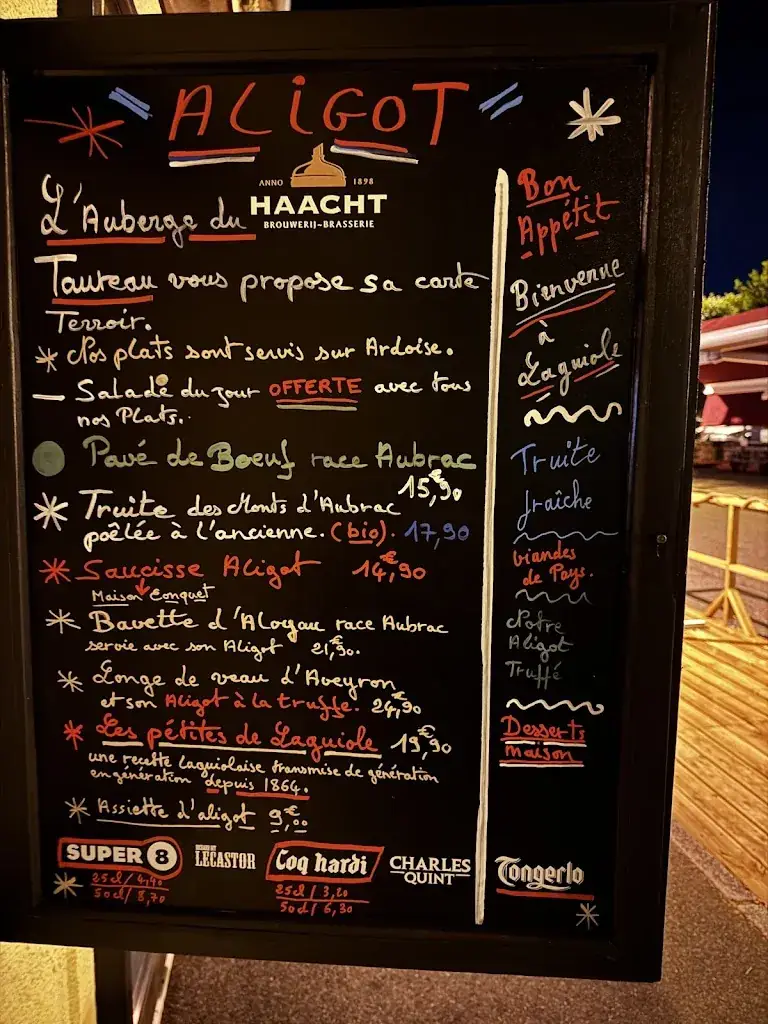 ALIGOT
ANNO 1898
HAACHT
BROUWERIJ-BRASSERIE
L'Auberge du
Taureau vous propose sa carte
Terroir.
* Nos plats sont servis sur Ardoise.
— Salade du jour OFFERTE avec tous
nos Plats.
Pavé de Boeuf race Aubrac
15,€90
* Truite des Monts d'Aubrac
poêlée à l'ancienne. (bio). 17,90
* Saucisse Aligot 14,€90
Maison Conquet
* Bavette d'Aloyau race Aubrac
servie avec son Aligot 21,€90.
* Longe de veau d'Aveyron
et son Aligot à la truffe. 24,€90
* Les pétites de Laguiole 19,€90
une recette Laguiolaise transmise de génération
en génération depuis 1864.
* Assiette d'aligot 9,€00
SUPER 8
25cl / 4,40
50cl / 8,70
LECASTOR
Coq hardi
25cl / 3,20
50cl / 6,30
CHARLES
QUINT
Bon
Appétit
Bienvenue
à
Laguiole
Truite
fraîche
Viandes
de Pays.
Notre
Aligot
Truffé
Desserts
maison
Tongerlo